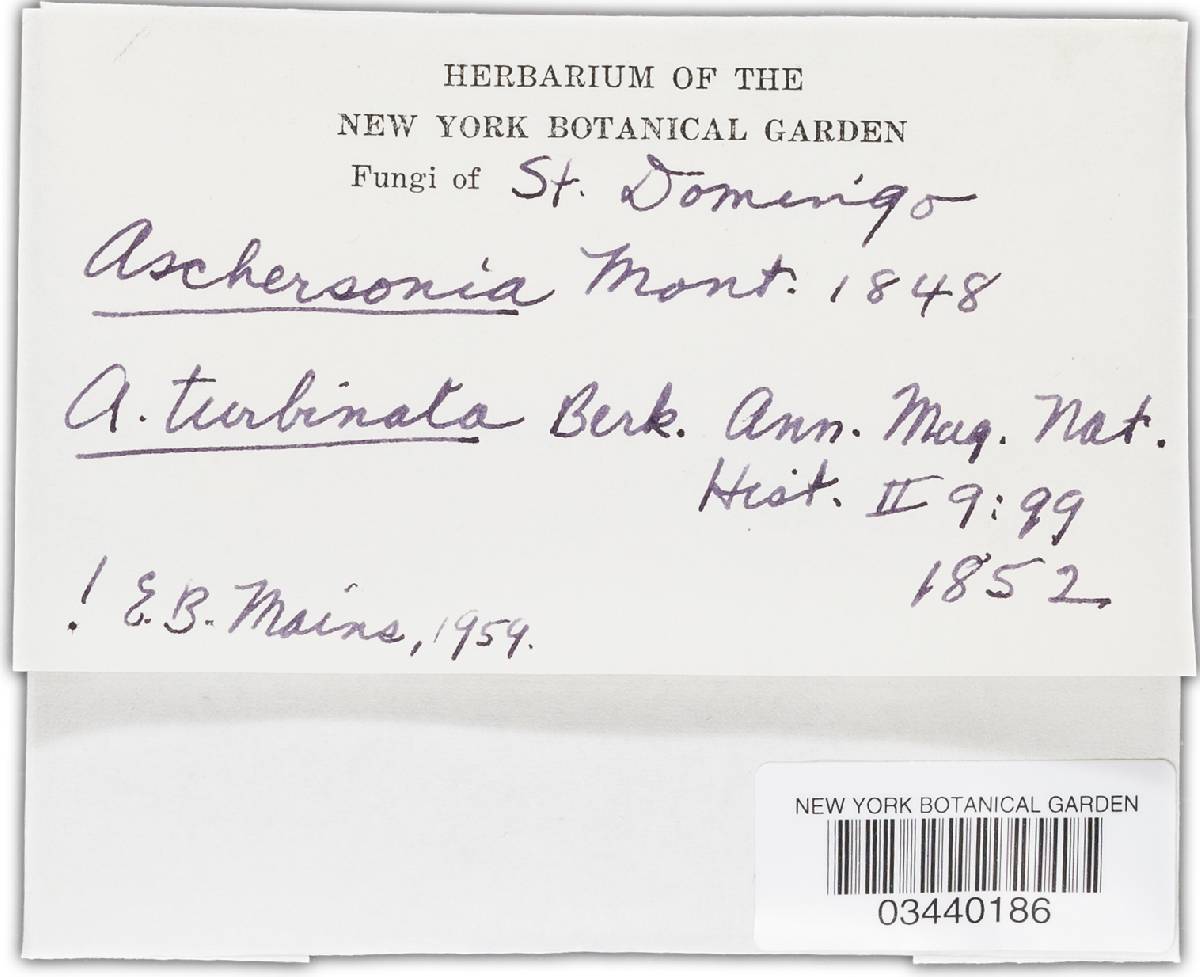 HERBARIUM OF THE
NEW YORK BOTANICAL GARDEN
Fungi of St. Domingo
Aschersonia Mont. 1848
A. turbinata Berk. Ann. Mag. Nat.
Hist. II 9:99
1852
! E.B. Mains, 1959.
NEW YORK BOTANICAL GARDEN
03440186